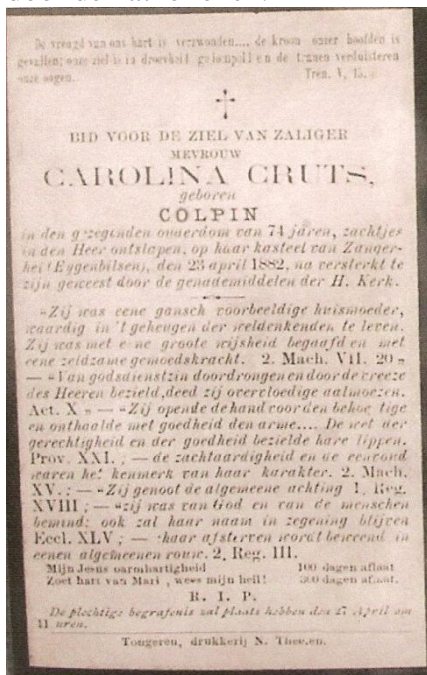 De vreugd van ons hart is verzwonden.... de kroon onzer hoofden is
gevallen; onze ziel is in droevheid gedompeld en de tranen verduisteren
onze oogen. Tren. V, 15.
BID VOOR DE ZIEL VAN ZALIGER
MEVROUW
CAROLINA CRUTS,
geboren
COLPIN
in den gezegenden ouderdom van 74 jaren, zachtjes
in den Heer ontslapen, op haar kasteel van Zanger-
hei (Eygenbilsen), den 23 april 1882, na versterkt te
zijn geweest door de genademiddelen der H. Kerk.
"Zij was eene gansch voorbeeldige huismoeder,
waardig in 't geheugen der weldenkenden te leven.
Zij was met eene groote wijsheid begaafd en met
eene zeldzame gemoedskracht. 2. Mach. VII. 20 "
— "Van godsdienstzin doordrongen en door de vreeze
des Heeren bezield, deed zij overvloedige aalmoezen.
Act. X " — "Zij opende de hand voor den behoeftige
en onthaalde met goedheid den arme.... De wet der
gerechtigheid en der goedheid bezielde hare lippen.
Prov. XXI. ; — de zachtaardigheid en de eenvoud
waren het kenmerk van haar karakter. 2. Mach.
XV. ; — "Zij genoot de algemeene achting 1. Reg.
XVIII ; — "zij was van God en van de menschen
bemind: ook zal haar naam in zegening blijven
Eccl. XLV ; — haar afsterven wordt beweend in
eenen algemeenen rouw. 2. Reg. III.
Mijn Jesus barmhartigheid 100 dagen aflaat
Zoet hart van Mari , wees mijn heil! 300 dagen aflaat.
R. I. P.
De plechtige begrafenis zal plaats hebben den 27 April om
11 uren.
Tongeren, drukkerij N. Theelen.